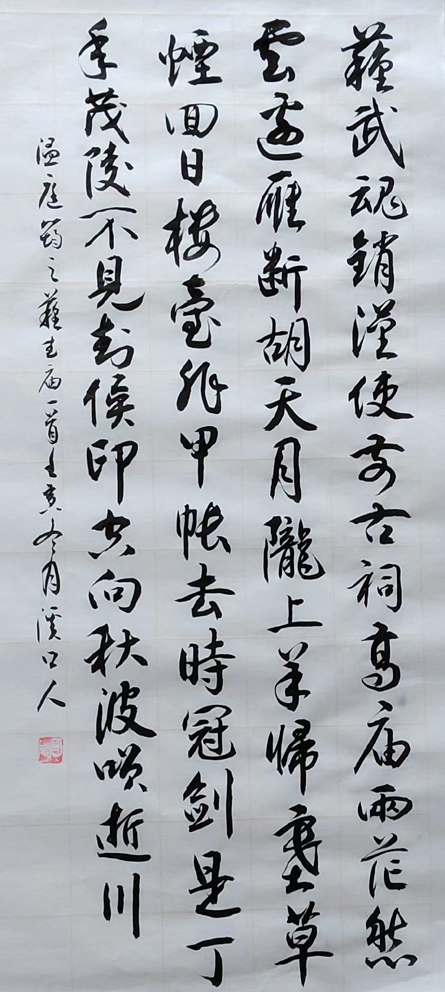 蘇武魂銷漢使前古祠高庙兩茫然
雲邊雁斷胡天月隴上羊歸塞草
煙回日樓臺非甲帳去時冠劍是丁
年茂陵不見封侯印空向秋波逝川
温庭筠之蘇武庙一首壬寅冬月溪口人